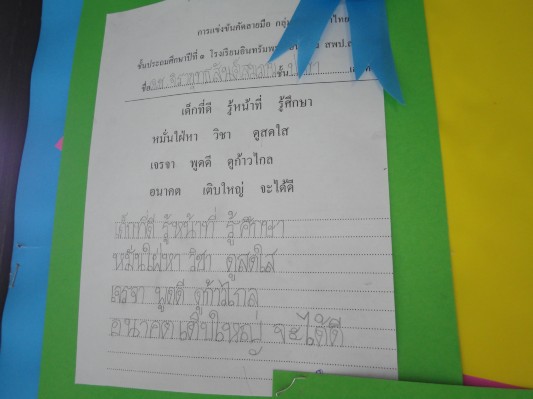 การแข่งขันคัดลายมือ กลุ่ม
ชั้นประถมศึกษาปีที่ ๑ โรงเรียนอินทรัมพ สพป.
ชื่อ ชั้น
เด็กที่ดี รู้หน้าที่ รู้ศึกษา
หมั่นใฝ่หา วิชา ดูสดใส
เจรจา พูดดี ดูก้าวไกล
อนาคต เติบใหญ่ จะได้ดี
เด็กที่ดี รู้หน้าที่ รู้ศึกษา
หมั่นใฝ่หา วิชา ดูสดใส
เจรจา พูดดี ดูก้าวไกล
อนาคต เติบใหญ่ จะได้ดี